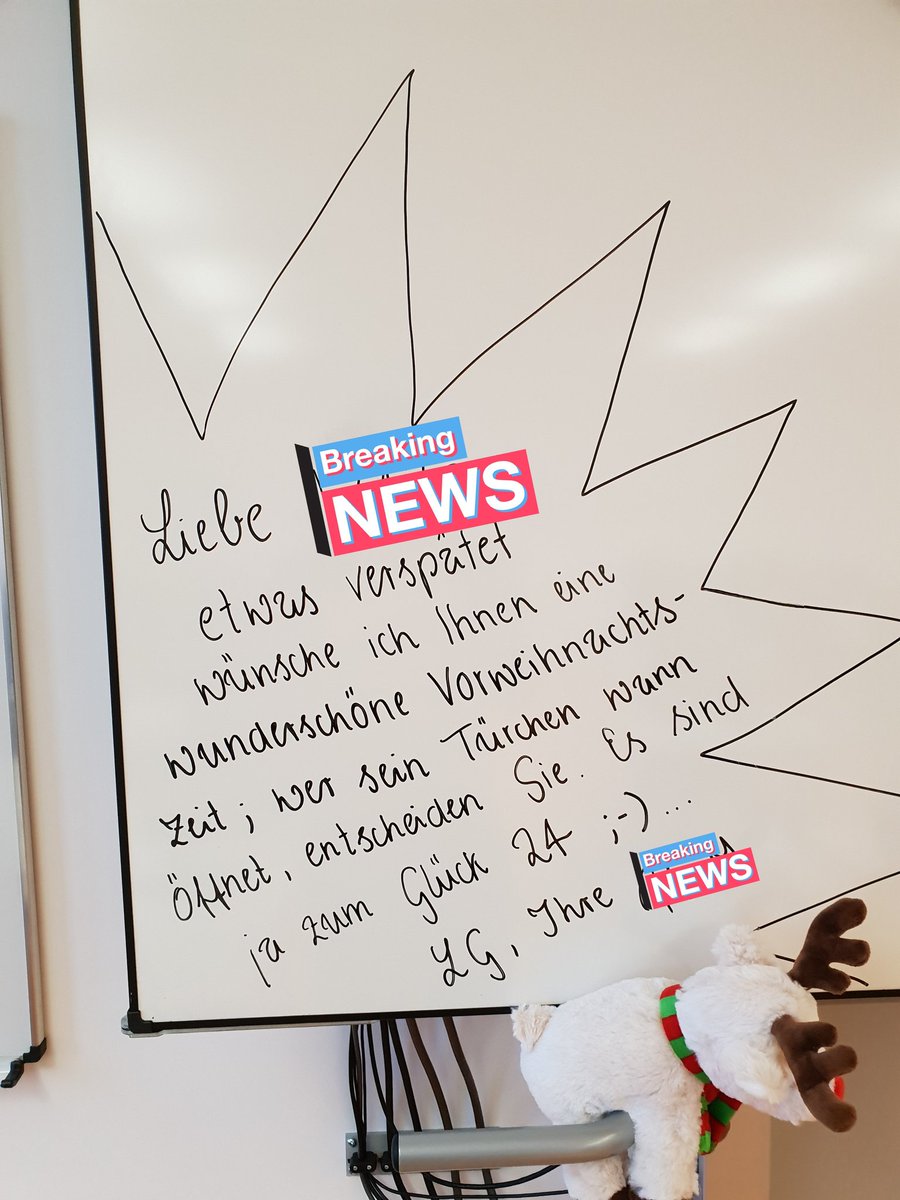 Breaking
NEWS
Liebe
etwas verspätet
wünsche ich Ihnen eine
wunderschöne Vorweihnachts-
zeit; wer sein Türchen wann
öffnet, entscheiden Sie. Es sind
ja zum Glück 24 ;-)...
LG, Ihre
Breaking
NEWS